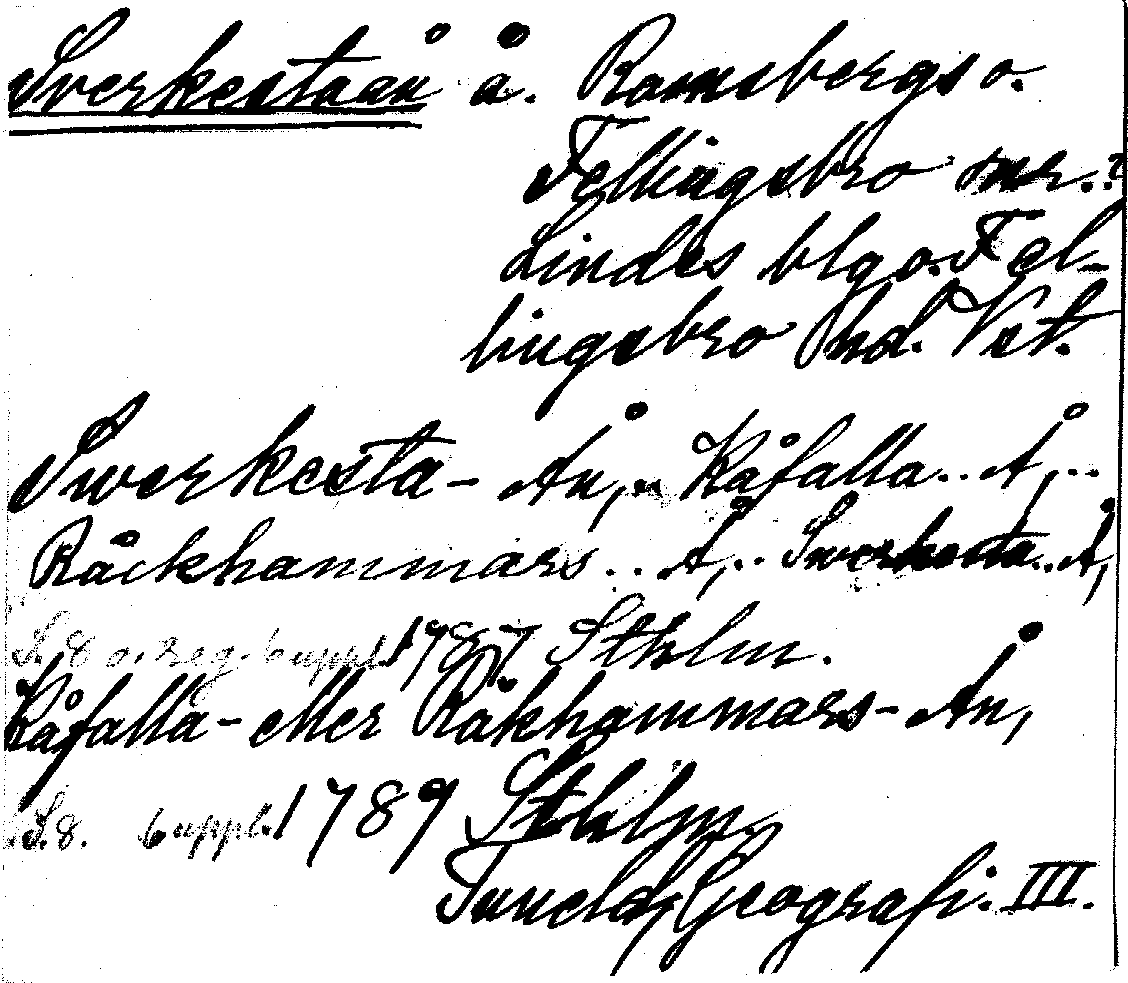 Sverkestaån å. Ramsbergs o.
Fellingsbro snr.?
Lindes blg o. Fel-
lingsbro hd. Vst.
Swerkesta- Ån, Kåfalla .. Å, ..
Råckhammars .. Å, .. Swerkesta .. Å,
S. 8 o. reg. 6 uppl. 1787 Sthlm.
Kåfalla- eller Råkhammars- Ån,
S. 8. 6 uppl. 1789 Sthlm.
Tuneld, Geografi. III.